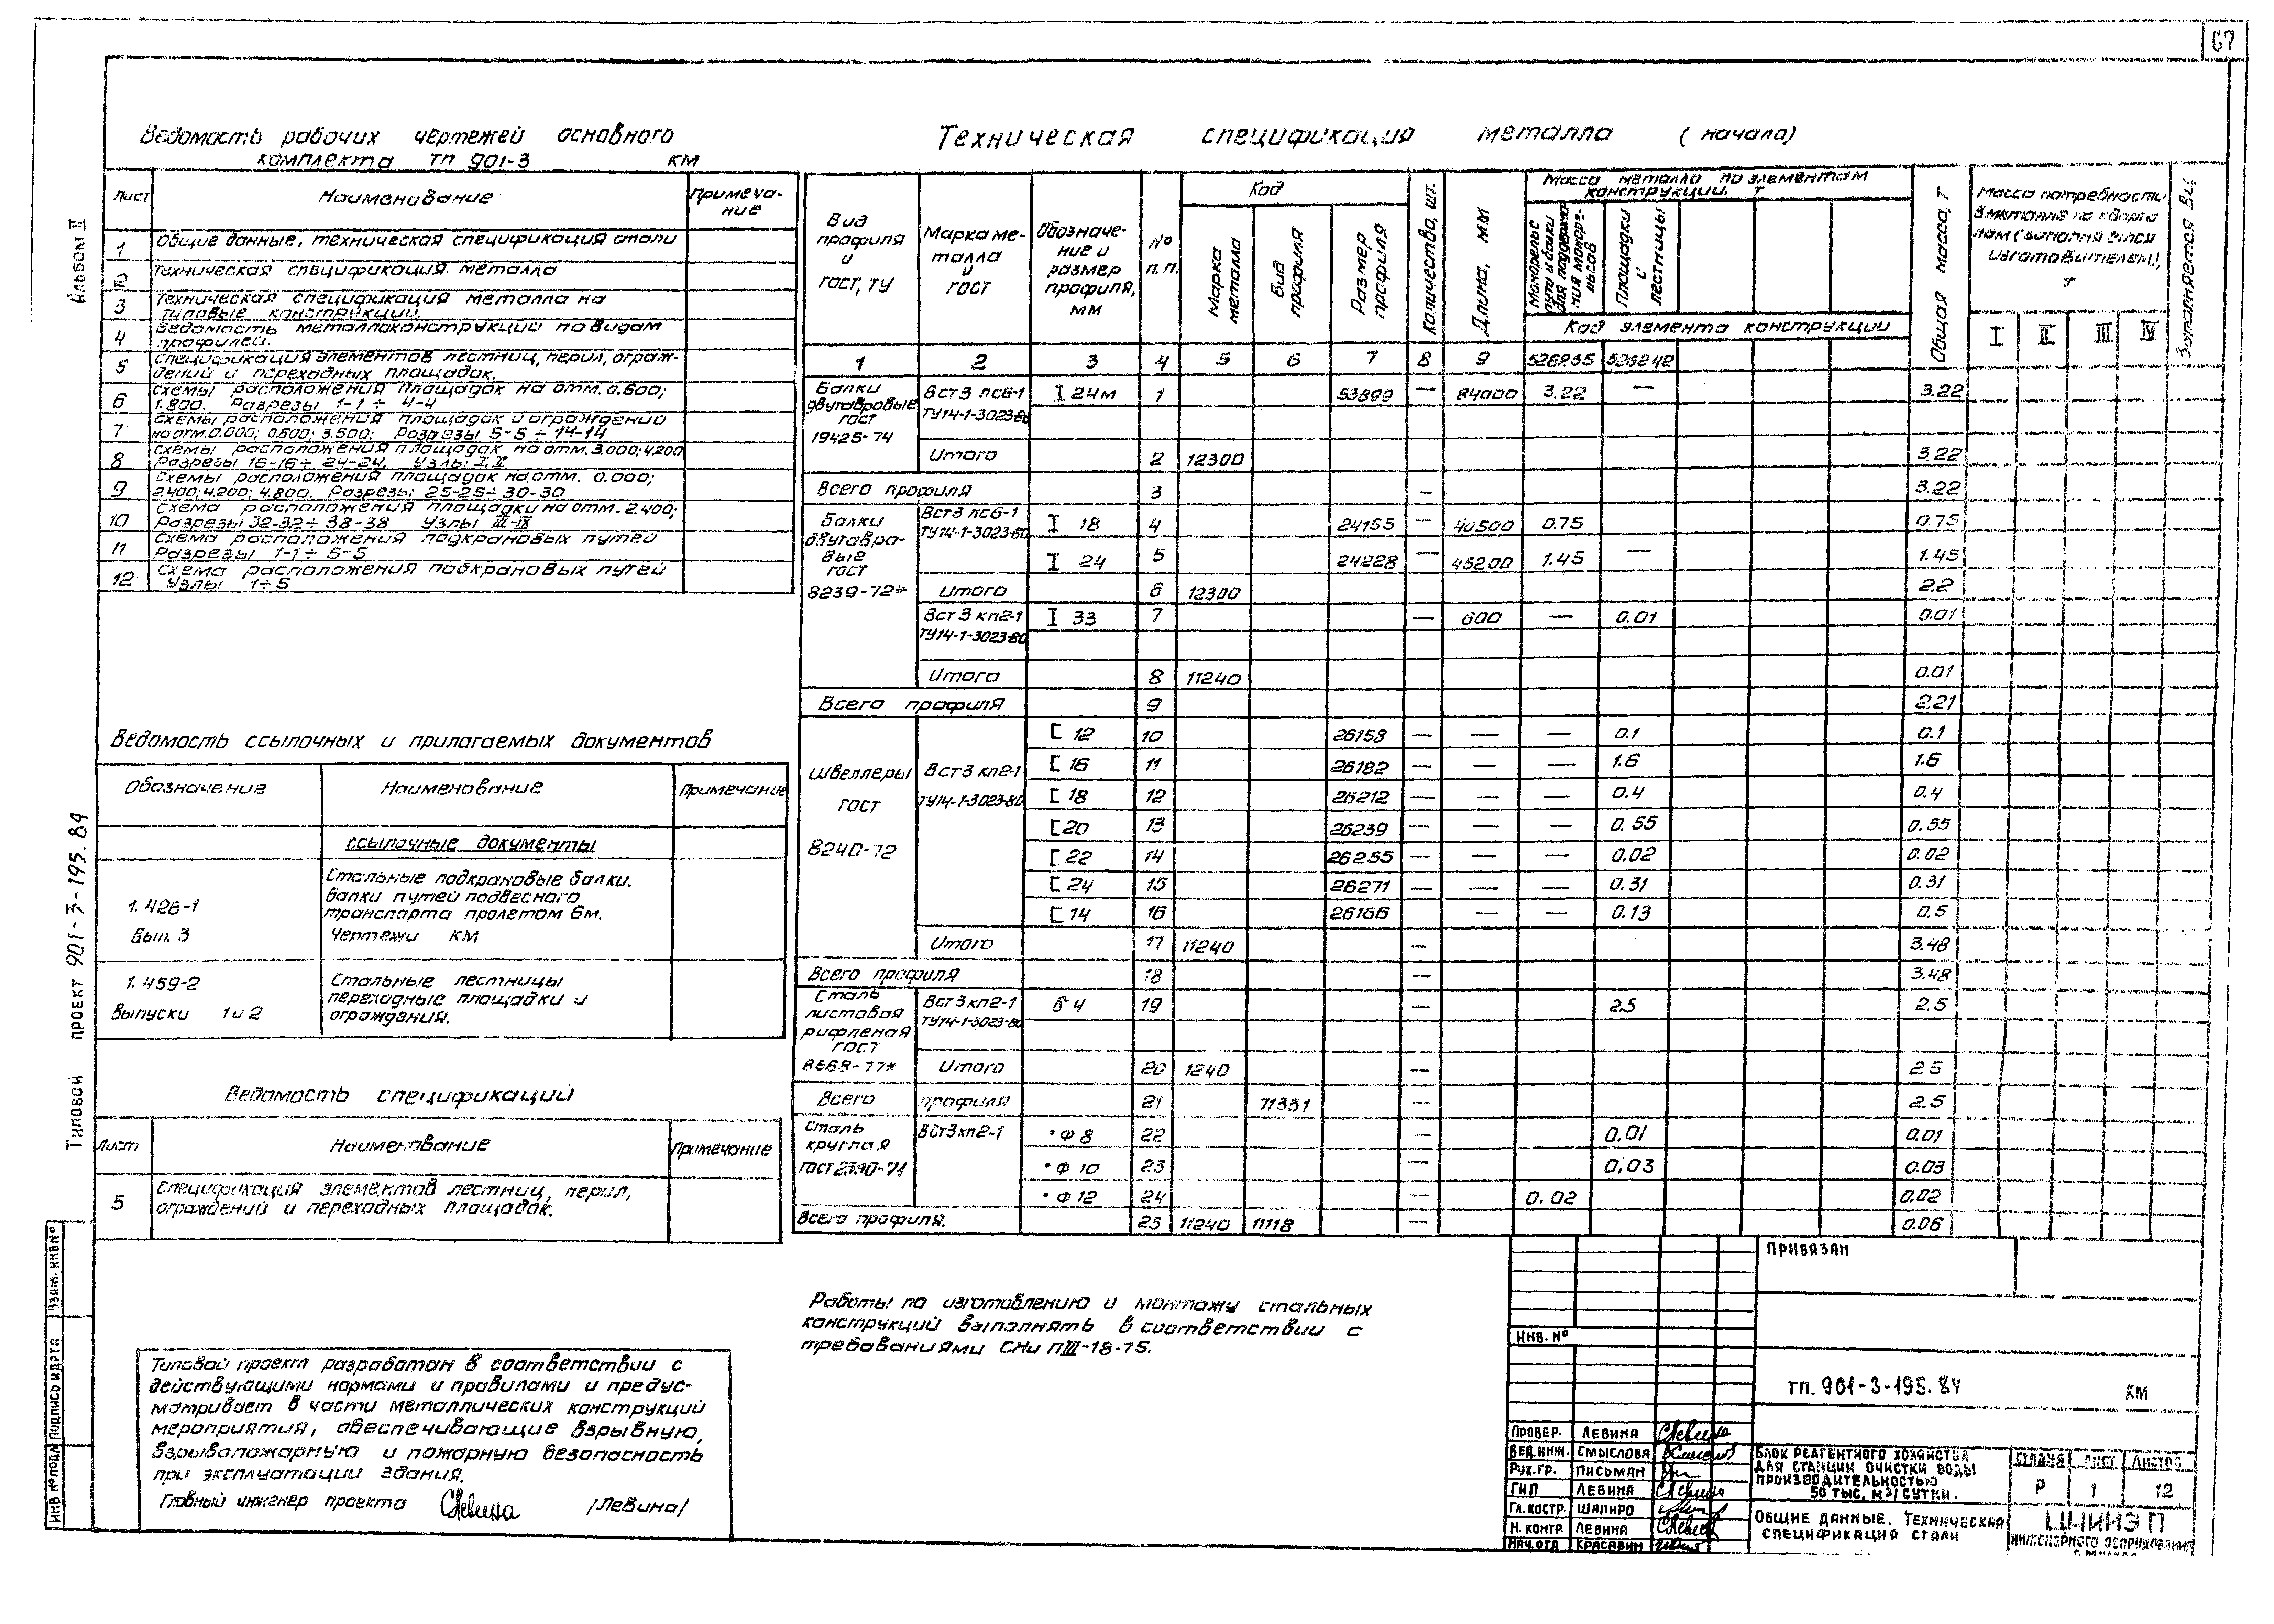 67
Ведомость рабочих чертежей основного
комплекта ТП 901-3 КМ
Лист Наименование Примеча-
ние
1 Общие данные, техническая спецификация стали
2 Техническая спецификация металла
3 Техническая спецификация металла на
типовые конструкции.
4 Ведомость металлоконструкций по видам
профилей.
5 Спецификация элементов лестниц, перил, ограж-
дений и переходных площадок.
6 Схемы расположения площадок на отм. 0.600;
1.800. Разрезы 1-1 ÷ 4-4
7 Схемы расположения площадок и ограждений
на отм. 0.000; 0.600; 3.500; Разрезы 5-5 ÷ 14-14
8 Схемы расположения площадок на отм. 3.000; 4.200
Разрезы 16-16 ÷ 24-24. Узлы I, II
9 Схемы расположения площадок на отм. 0.000;
2.400; 4.200; 4.800. Разрезы 25-25 ÷ 30-30
10 Схема расположения площадки на отм. 2.400;
Разрезы 32-32 ÷ 38-38 Узлы III-IX
11 Схема расположения подкрановых путей
Разрезы 1-1 ÷ 5-5
12 Схема расположения подкрановых путей
Узлы 1÷5
Ведомость ссылочных и прилагаемых документов
Обозначение Наименование Примечание
Ссылочные документы
1.426-1
вып. 3
Стальные подкрановые балки.
балки путей подвесного
транспорта пролетом 6м.
Чертежи КМ
1.459-2
Выпуски 1 и 2
Стальные лестницы
переходные площадки и
ограждения.
Ведомость спецификаций
Лист Наименование Примечание
5 Спецификация элементов лестниц, перил,
ограждений и переходных площадок.
Типовой проект разработан в соответствии с
действующими нормами и правилами и предус-
матривает в части металлических конструкций
мероприятия, обеспечивающие взрывную,
взрывопожарную и пожарную безопасность
при эксплуатации здания.
Главный инженер проекта /Левина/
Техническая спецификация металла (начало)
Вид
профиля
и
ГОСТ, ТУ
Марка ме-
талла
и
ГОСТ
Обозначе-
ние и
размер
профиля,
мм
№
п.п.
Код
Марка
металла
Вид
профиля
Размер
профиля
Количество, шт.
Длина, мм
Масса металла по элементам
конструкции, т
Монорельс
пути и балки
для поддержа-
ния монорe-
льсов
Площадки
и
лестницы
Код элемента конструкции
Общая масса, т
Масса потребности
в металле по кварта
лам (заполняется
изготовителем),
т
I II III IV
Заполняется ВЦ
1 2 3 4 5 6 7 8 9 526235 526242
Балки
двутавровые
ГОСТ
19425-74
ВСт3 пс6-1
ТУ14-1-3023-80
I 24м 1 53899 — 84000 3.22 — 3.22
Итого 2 12300 3.22
Всего профиля 3 — 3.22
Балки
двутавро-
вые
ГОСТ
8239-72*
ВСт3 пс6-1
ТУ14-1-3023-80
I 18 4 24155 — 40500 0.75 0.75
I 24 5 24228 — 45200 1.45 — 1.45
Итого 6 12300 2.2
ВСт3 кп2-1
ТУ14-1-3023-80
I 33 7 — 600 — 0.01 0.01
Итого 8 11240 0.01
Всего профиля 9 2.21
Швеллеры
ГОСТ
8240-72
ВСт3 кп2-1
ТУ14-1-3023-80
[ 12 10 26158 — — — 0.1 0.1
[ 16 11 26182 — — — 1.6 1.6
[ 18 12 26212 — — — 0.4 0.4
[ 20 13 26239 — — — 0.55 0.55
[ 22 14 26255 — — — 0.02 0.02
[ 24 15 26271 — — — 0.31 0.31
[ 14 16 26166 — — 0.13 0.5
Итого 17 11240 — 3.48
Всего профиля 18 — 3.48
Сталь
листовая
рифленая
ГОСТ
8568-77*
ВСт3 кп2-1
ТУ14-1-3023-80
б 4 19 — 2.5 2.5
Итого 20 1240 — 2.5
Всего профиля 21 71331 — 2.5
Сталь
круглая
ГОСТ 2590-71
ВСт3кп2-1
• Ф 8 22 — 0.01 0.01
• Ф 10 23 — 0,03 0.03
• Ф 12 24 — 0.02 0.02
Всего профиля. 25 11240 11118 — 0.06
Работы по изготовлению и монтажу стальных
конструкций выполнять в соответствии с
требованиями СНиП III-18-75.
ПРИВЯЗАН
ИНВ. №
ТП. 901-3-195.84 КМ
ПРОВЕР. ЛЕВИНА
ВЕД.ИНЖ. СМЫСЛОВА
РУК.ГР. ПИСЬМАН
ГИП ЛЕВИНА
ГЛ.КОСТР. ШАПИРО
Н. КОНТР. ЛЕВИНА
НАЧ.ОТД КРАСАВИН
БЛОК РЕАГЕНТНОГО ХОЗЯЙСТВА
ДЛЯ СТАНЦИИ ОЧИСТКИ ВОДЫ
ПРОИЗВОДИТЕЛЬНОСТЬЮ
50 ТЫС. М³/СУТКИ.
СТАДИЯ ЛИСТ ЛИСТОВ
Р 1 12
ОБЩИЕ ДАННЫЕ. ТЕХНИЧЕСКАЯ
СПЕЦИФИКАЦИЯ СТАЛИ
ЦНИИЭП
ИНЖЕНЕРНОГО ОБОРУДОВАНИЯ
Альбом II
Типовой проект 901-3-195.84
ИНВ № ПОДЛ ПОДПИСЬ И ДАТА ВЗАМ. ИНВ №